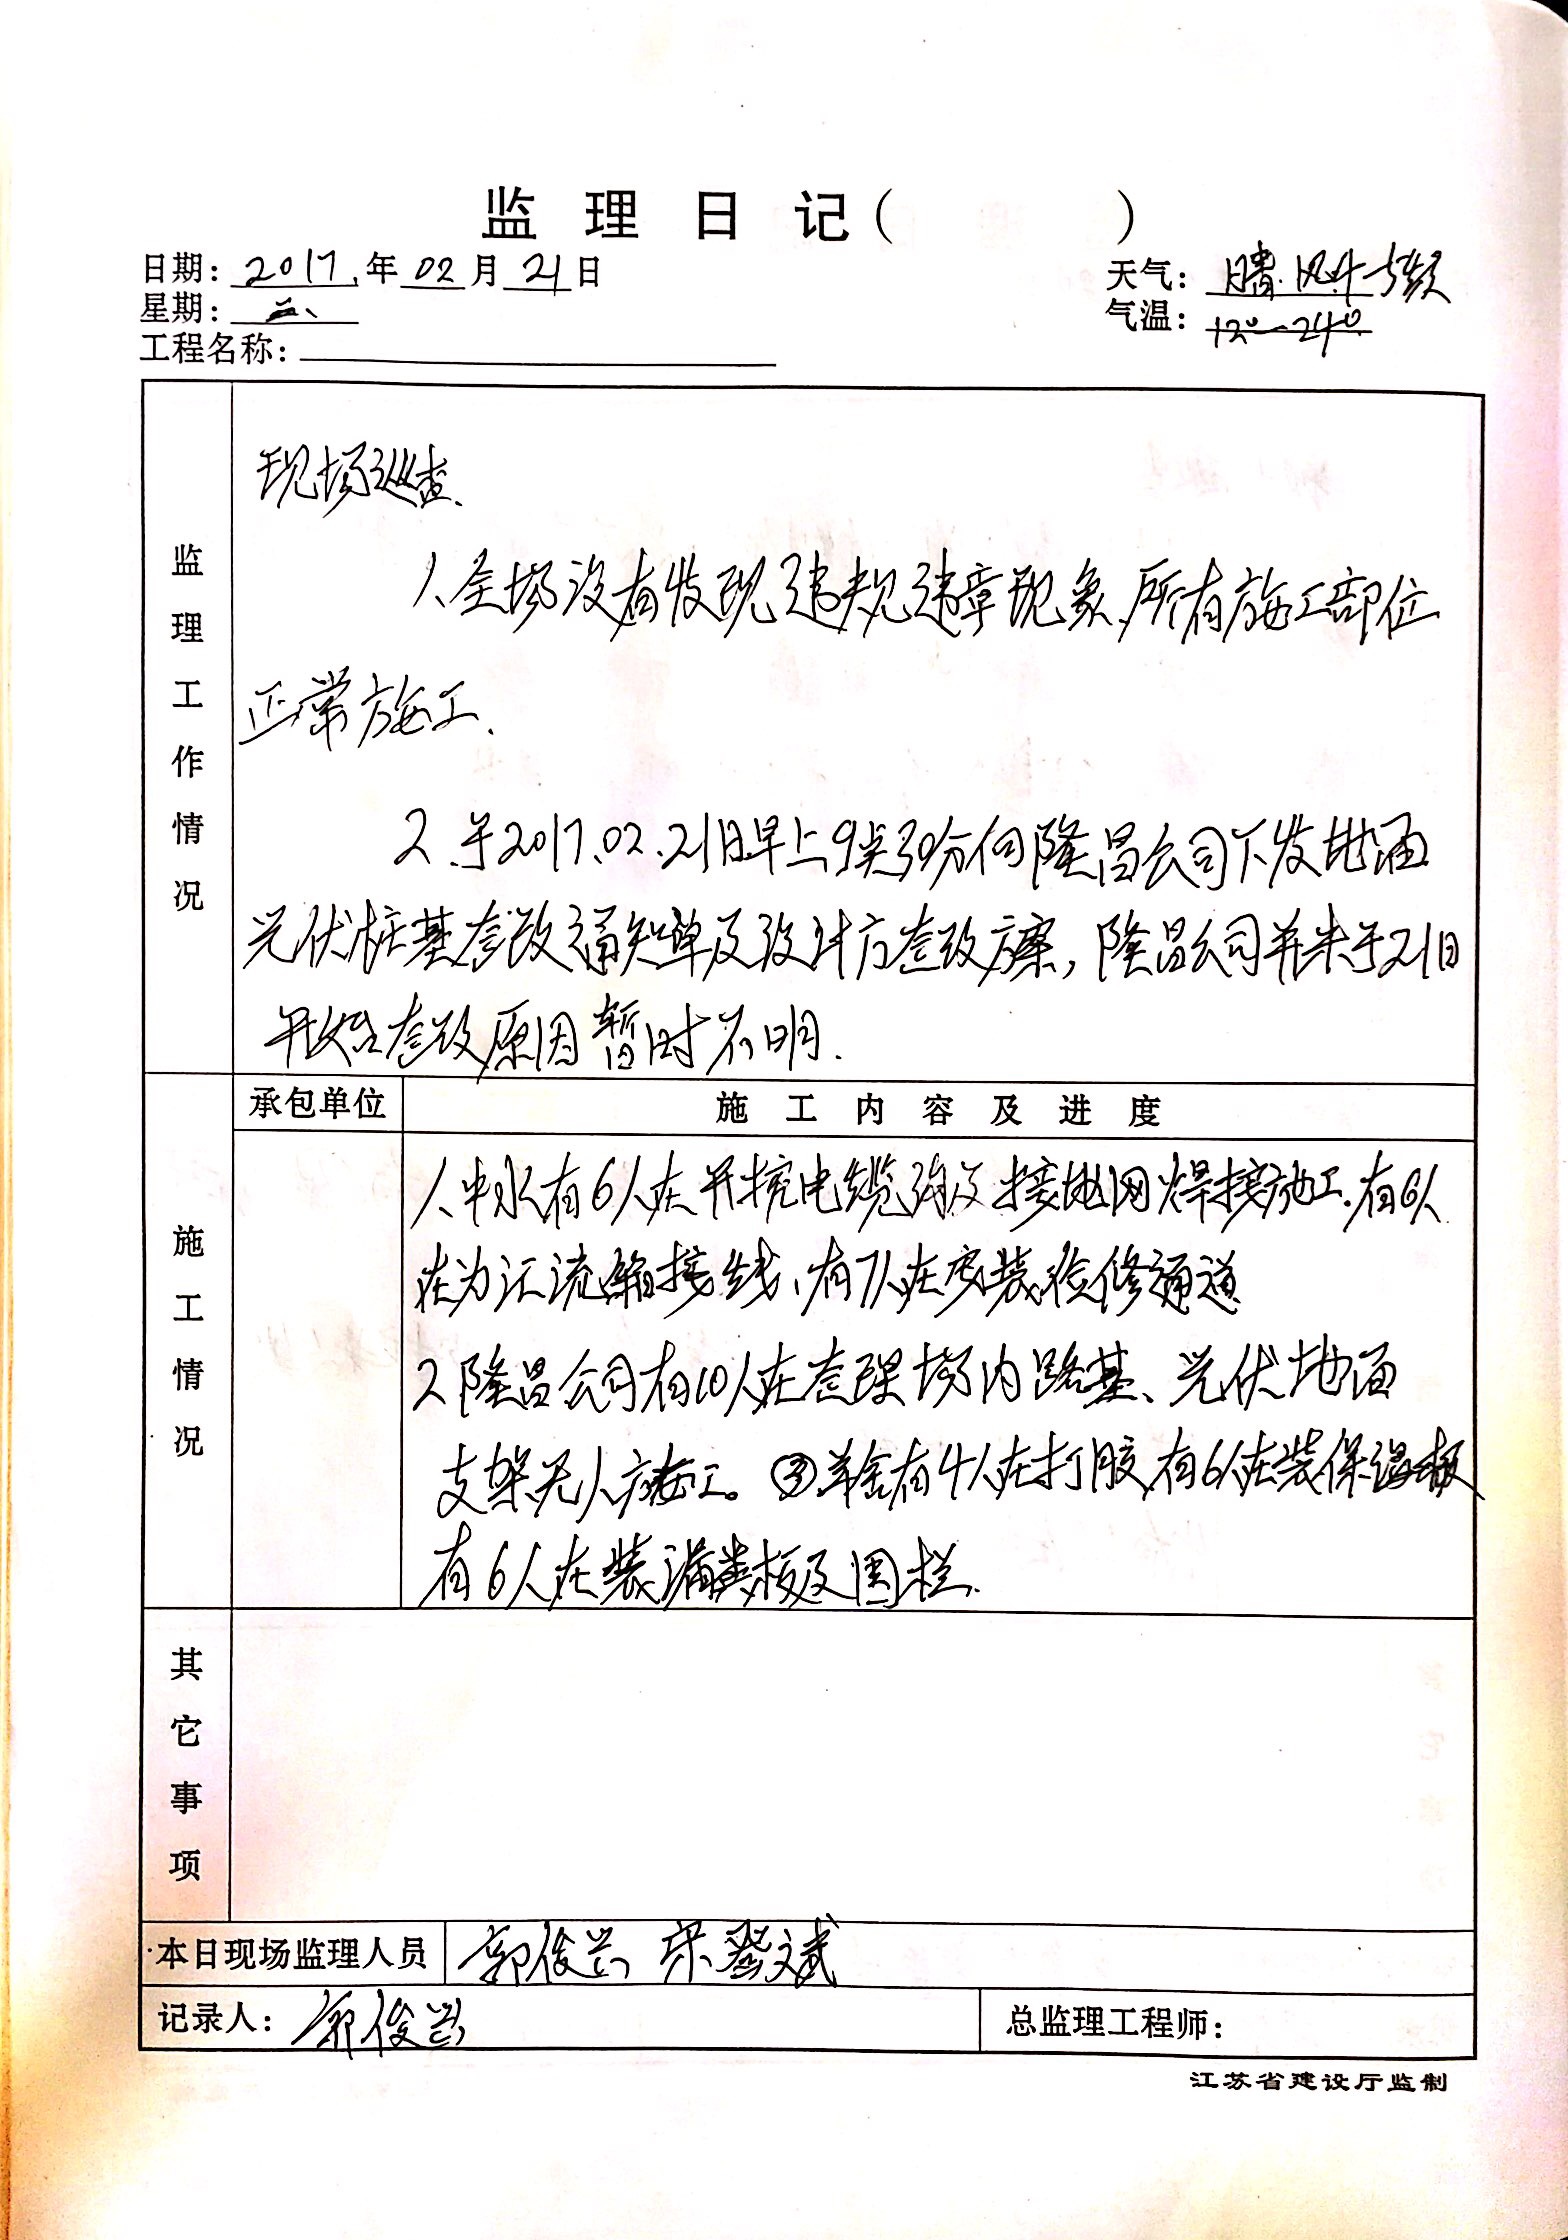 监理日记（ ）
日期：2017.年02月21日
天气：晴.风4-5级
星期：二、
气温：12°-24°
工程名称：
监理工作情况
现场巡查.
1.全场没有发现违规违章现象,所有施工部位
正常施工.
2.于2017.02.21日早上9点30分向隆昌公司下发地面
光伏桩基整改通知单及设计方整改方案，隆昌公司并未于21日
开始整改原因暂时不明.
施工情况
承包单位
施工内容及进度
1.中水有6人在开挖电缆沟及接地网焊接施工.有6人
在为汇流箱接线、有7人在安装检修通道
2.隆昌公司有10人在整理场内路基、光伏地面
支架无人施工。③羊舍有4人在打胶,有6人在装保温板
有6人在装漏粪板及围栏.
其它事项
本日现场监理人员 郭俊兴 宋登斌
记录人：郭俊兴
总监理工程师：
江苏省建设厅监制